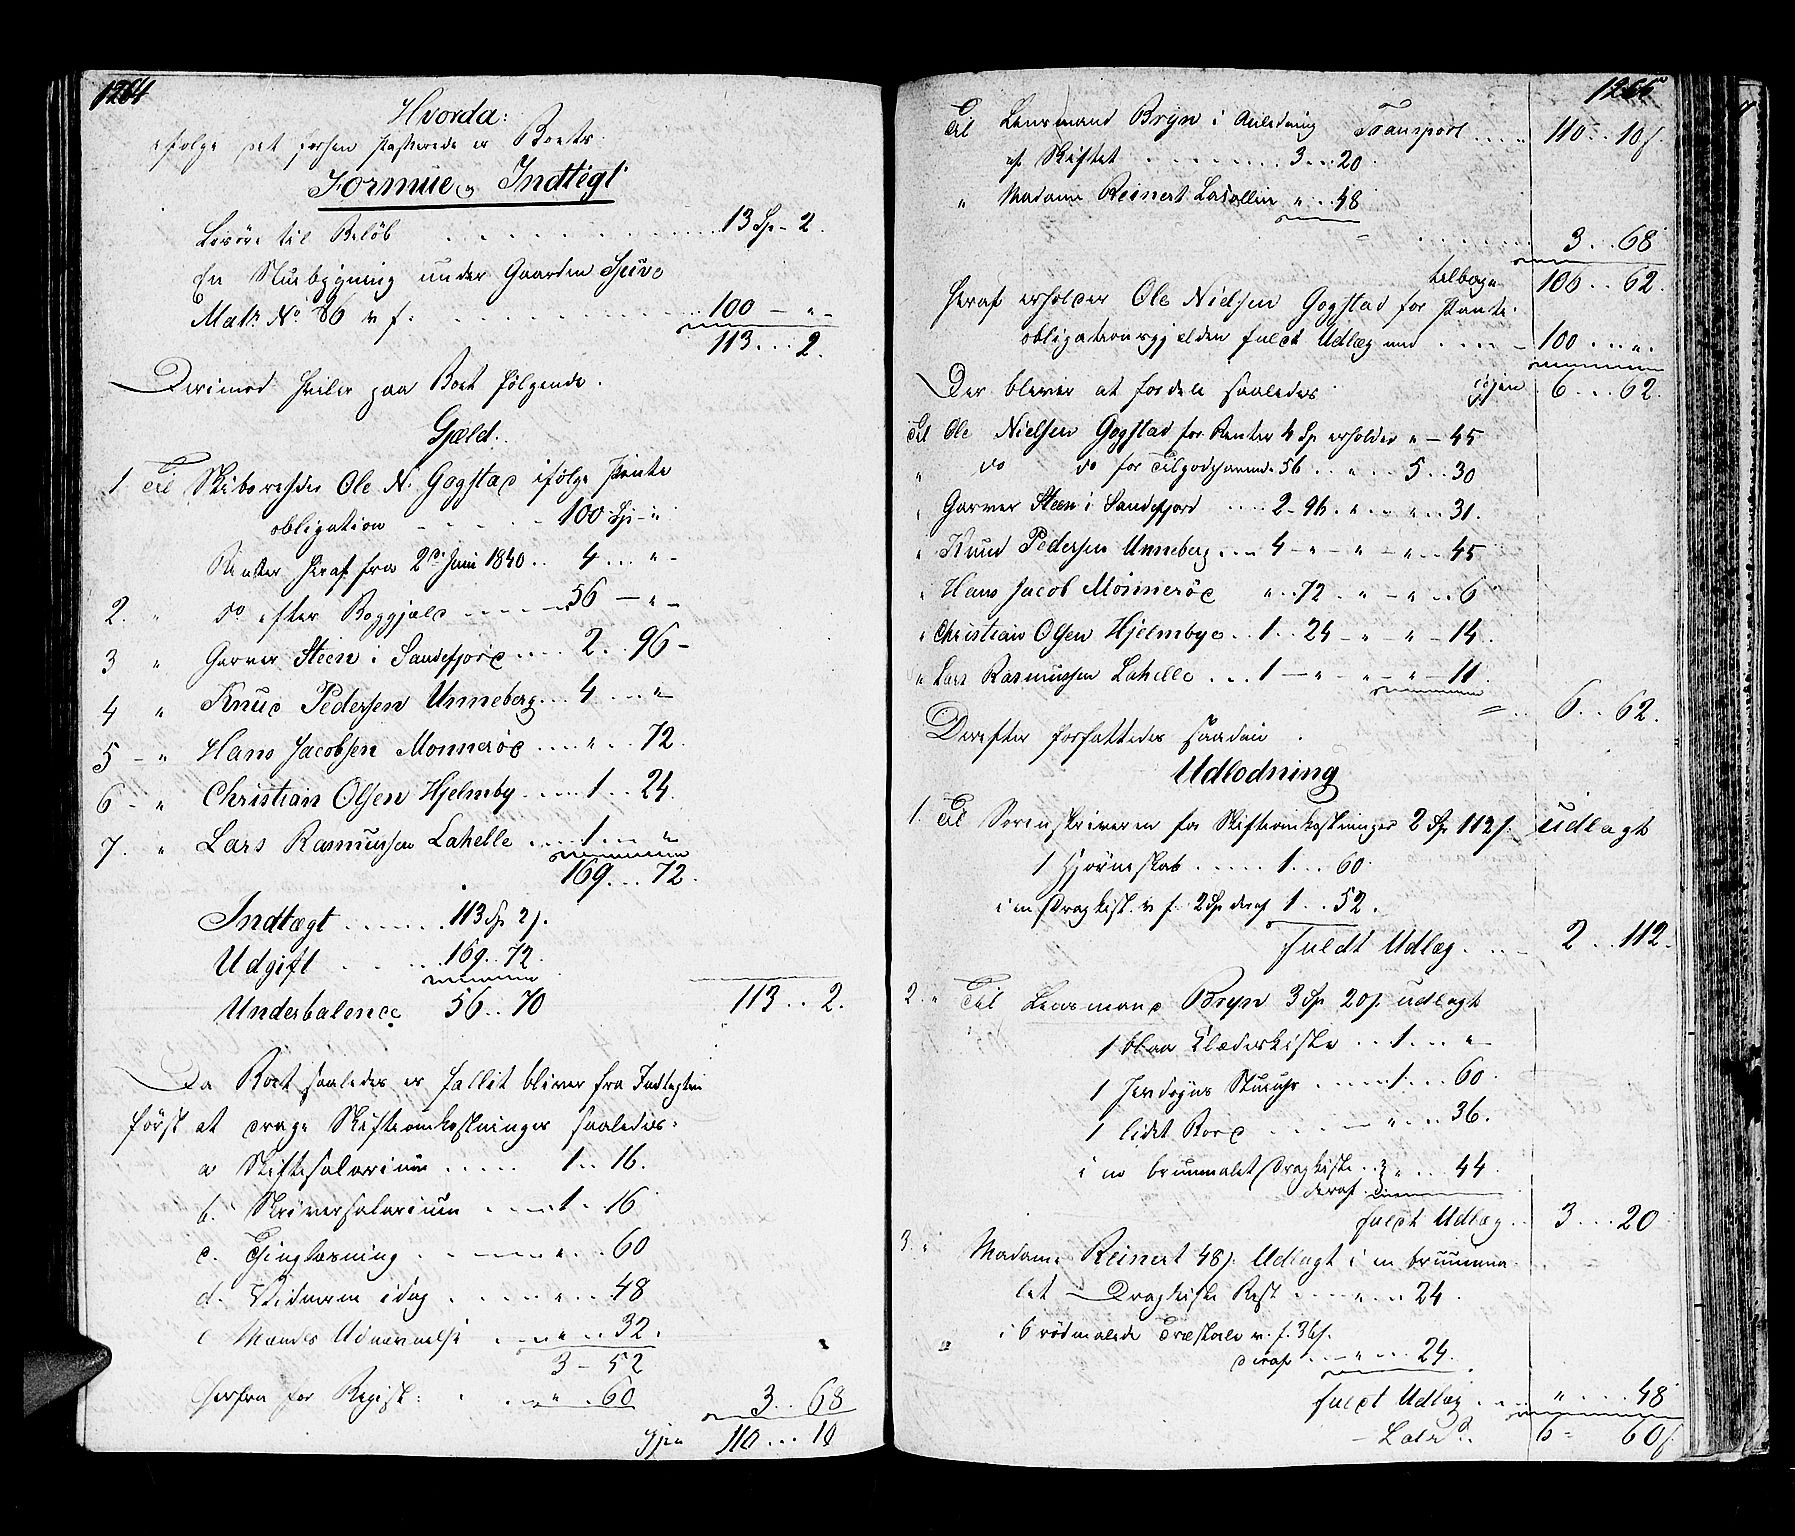 1264
Hvorda:
ifølge det forhen passerede er Boets
Formue og Indtegt
Løsøre til Beløb 13 Sp - 2.
En Stuebygning under Gaarden Spive
Matr. No 86 v f. 100 - " -
113 .. 2.
Derimod hviler paa Boet følgende
Gjeld:
1 Til Skibsreder Ole N. Gogstad ifølge Pante
obligation 100 Sp - "
Renter heraf fra 2den Juni 1840 .. 4 ... " -
2. " do efter Boggjæld 56 - " -
3 " Garver Steen i Sandefjord .... 2 .. 96 -
4 " Knud Pedersen Unneberg ... 4 ... " -
5 - " Hans Jacobsen Monnerød .... " .. 72.
6 - " Christian Olsen Hjelmby .... 1 .. 24.
7. " Lars Rasmussen Lahelle .... 1 ... "
169 ... 72.
Indtægt ....... 113 Sp 2 s.
Udgift ..... 169 .. 72.
Underbalence 56 .. 70 113 .. 2.
Da Boet saaledes er fallit bliver fra Indtegten
først at drage Skifteomkostninger saaledes:
a Skiftesalarium ..... 1 .. 16.
b. Skriversalarium .... 1 .. 16
c. Thinglæsning ...... " .. 60
d. Vidnerne idag ..... " .. 48
e Mænds Udnævnelse .... " .. 32.
3 - 52
herfra for Regist: " .. 60 3 .. 68
Igjen 110 ... 10
1265
Transport .... 110 .. 10 s.
Til Lensmand Bryn i Anledning
af Skiftet ........ 3 ... 20.
" Madame Reinert Lasallien " .. 48
= ....... 3 ... 68
tilbage 106 .. 62.
Heraf erholder Ole Nielsen Gogstad for Pante-
obligationsgjælden fuldt Udlæg med .... 100 .... " .
Der bliver at fordele saaledes igjen 6 ... 62.
Til Ole Nielsen Gogstad for Renter 4 Sp erholder " - 45
" do do for Tilgodehavende 56 .. " ... 5 .. 30
" Garver Steen i Sandefjord .... 2 - 96 . " . - " .. 31.
" Knud Pedersen Unneberg ... 4 - " - " - " .. 45
" Hans Jacob Monnerød " .. 72 . " - " .. 6
" Christian Olsen Hjelmbye .. 1 .. 24 - " - " - 14.
" Lars Rasmussen Lahelle ... 1 - " - " - " - 11.
= .. 6 .. 62.
Derefter forfattedes saadan
Udlodning
1. Til Sorenskriveren for Skifteomkostninger 2 Sp 112 s. udlagt
1 Hjørneskab ..... 1 ... 60.
i en Dragkist. v f. 2 Sp deraf 1 .. 52.
fuldt Udlæg .... 2 ... 112.
2. " Til Lensmand Bryn 3 Sp 20 s. udlagt
1 blaa Klæderkiste ... 1 ... " -
1 Stueuhr ...... 1 ... 60
1 lidet Bord ....... " ... 36.
i en brunmalet Dragkiste ... " ... 44.
deraf
fuldt Udlæg .. 3 ... 20
3. " Madame Reinert 48 s. Udlagt i en brunma-
let Dragkiste Rest .... " ... 24.
i 6 rødmalede Træstole v. f. 36 s.
deraf ... " .... 24.
fuldt Udlæg .... " .... 48
Lateris 6 = 60 s.